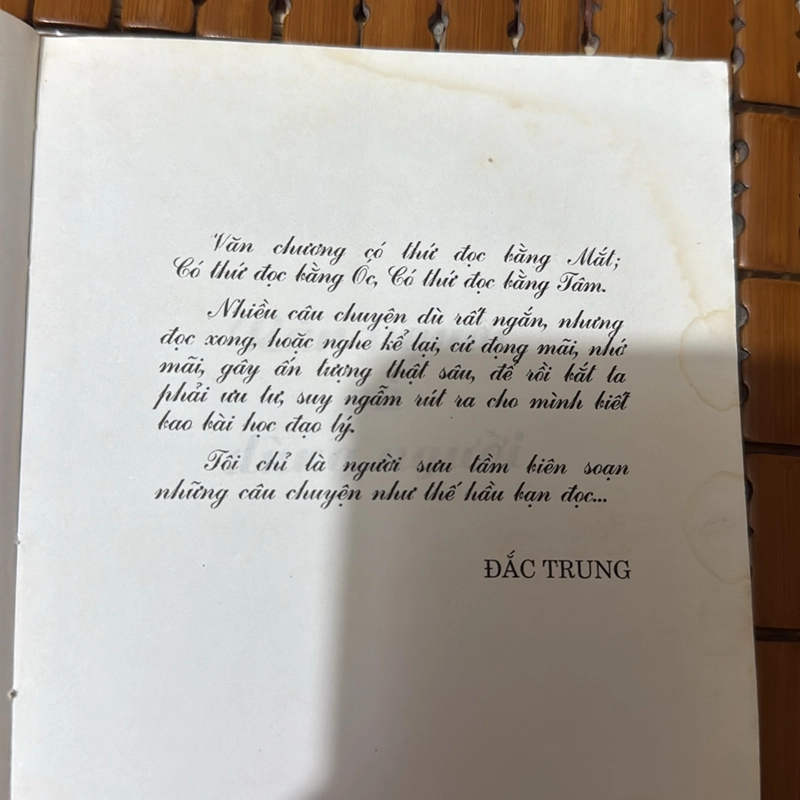 Văn chương có thứ đọc bằng Mắt;
Có thứ đọc bằng Óc, Có thứ đọc bằng Tâm.
Nhiều câu chuyện dù rất ngắn, nhưng
đọc xong, hoặc nghe kể lại, cứ đọng mãi, nhớ
mãi, gây ấn tượng thật sâu, để rồi bắt ta
phải ưu tư, suy ngẫm rút ra cho mình biết
bao bài học đạo lý.
Tôi chỉ là người sưu tầm biên soạn
những câu chuyện như thế hầu bạn đọc...
ĐẮC TRUNG